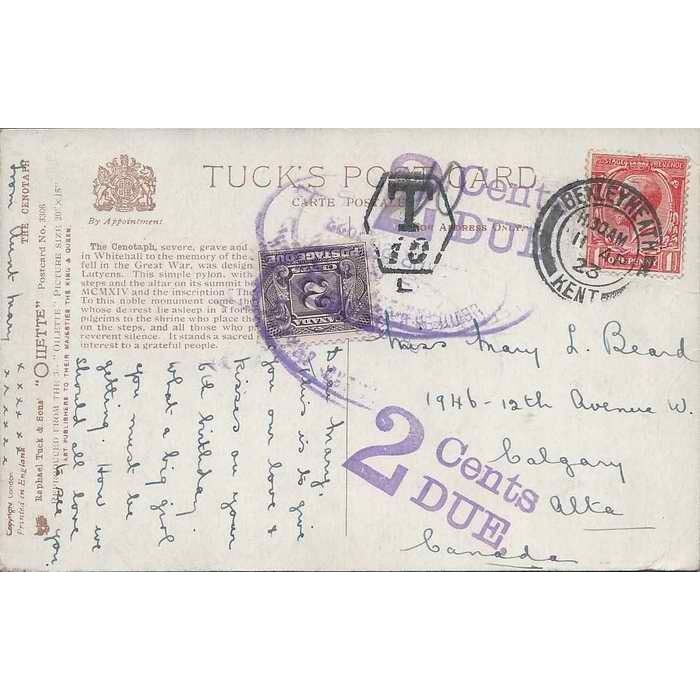 TUCK'S POST CARD
CARTE POSTALE
FOR ADDRESS ONLY.
By Appointment
The Cenotaph, severe, grave and
in Whitehall to the memory of the
fell in the Great War, was design
Lutyens. This simple pylon, with
steps and the altar on its summit be
MCMXIV and the inscription "The
To this noble monument come the
whose dearest lie asleep in a foreig
pilgrims to the shrine who place th
on the steps, and all those who p
reverent silence. It stands a sacred
interest to a grateful people.
THE CENOTAPH
Postcard No. 3306
Raphael Tuck & Sons' "OILETTE"
REPRODUCED FROM THE "OILETTE" PICTURE SIZE 20"X15"
ART PUBLISHERS TO THEIR MAJESTIES THE KING & QUEEN.
Copyright London
Printed in England
from Aunt Mary
x x x x x x
x x x x x x
Mary,
this is to give
you our love &
kisses on your
6th birthday
what a big girl
you must be
getting. How we
should all love
to see you
Miss Mary L. Beard
1946-12th Avenue W.
Calgary
Alta
Canada
2 Cents
DUE
2 Cents
DUE
T
10
L
POSTAGE DUE
2
CANADA
BEXLEYHEATH
11.30AM
23
KENT
POSTAGE REVENUE
ONE PENNY